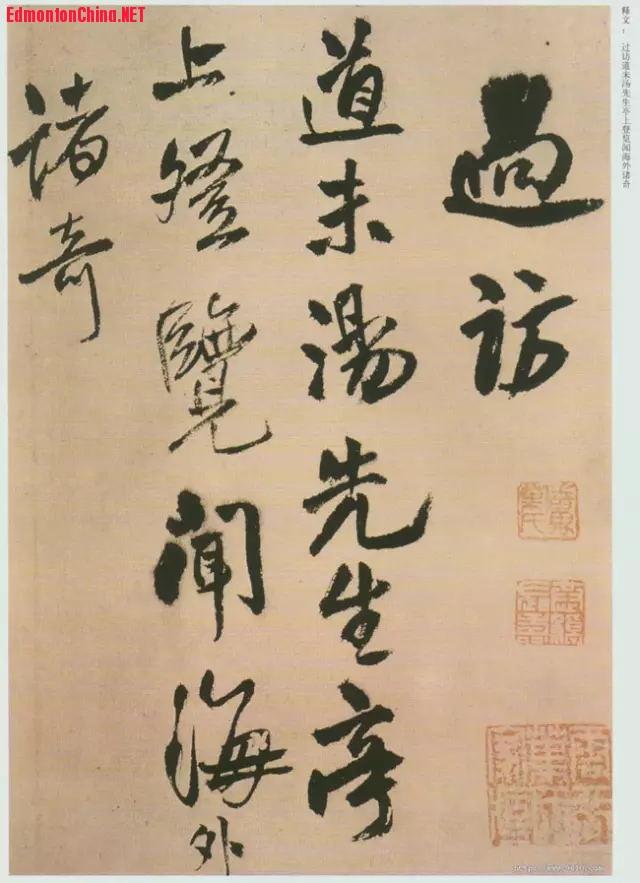 EdmontonChina.NET
释文： 过访道未汤先生亭上登览闻海外诸奇
過訪
道未湯先生亭
上登覽聞海外
諸奇